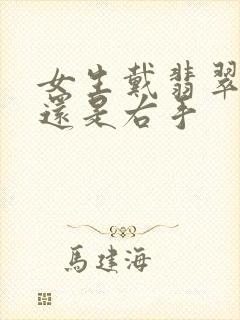 女生戴翡翠
還是右手
馬建海